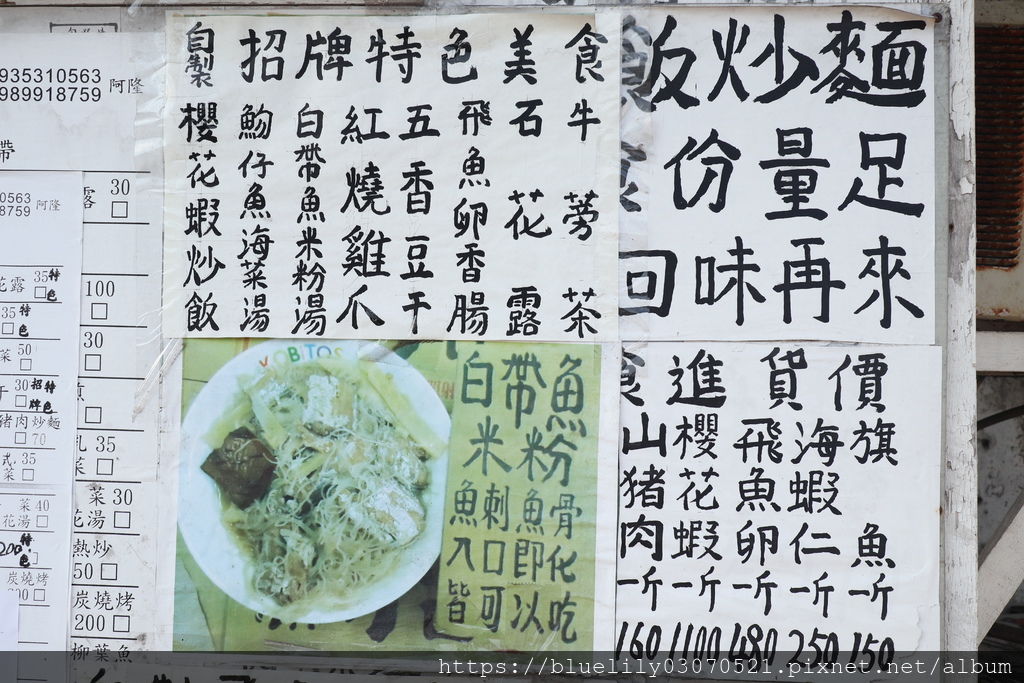 自製招牌特色美食
櫻花蝦炒飯
魩仔魚海菜湯
白帶魚米粉湯
紅燒雞爪
五香豆干
飛魚卵香腸
石花露
牛蒡茶
飯炒麵
份量足
回味再來
食進貨價
山豬肉一斤160
櫻花蝦一斤1100
飛魚卵一斤480
海蝦仁一斤250
旗魚一斤150
白帶魚
米粉
魚刺魚骨
入口即化
皆可以吃
YOBITOS
935310563
989918759 阿隆
帶
0563
8759 阿隆
露 30 □
100 □
30 □
35
菜 □
菜 30
花湯 □
熱炒
50 □
炭燒烤
200 □
柳葉魚
花露 35 特色 □
35 特色 □
菜 50 □
30 招牌特色 □
豬肉炒麵 □ 70
式 35
菜 □
菜 40
花湯 □
200 特色 □
炭燒烤
https://bluelily03070521.pixnet.net/album